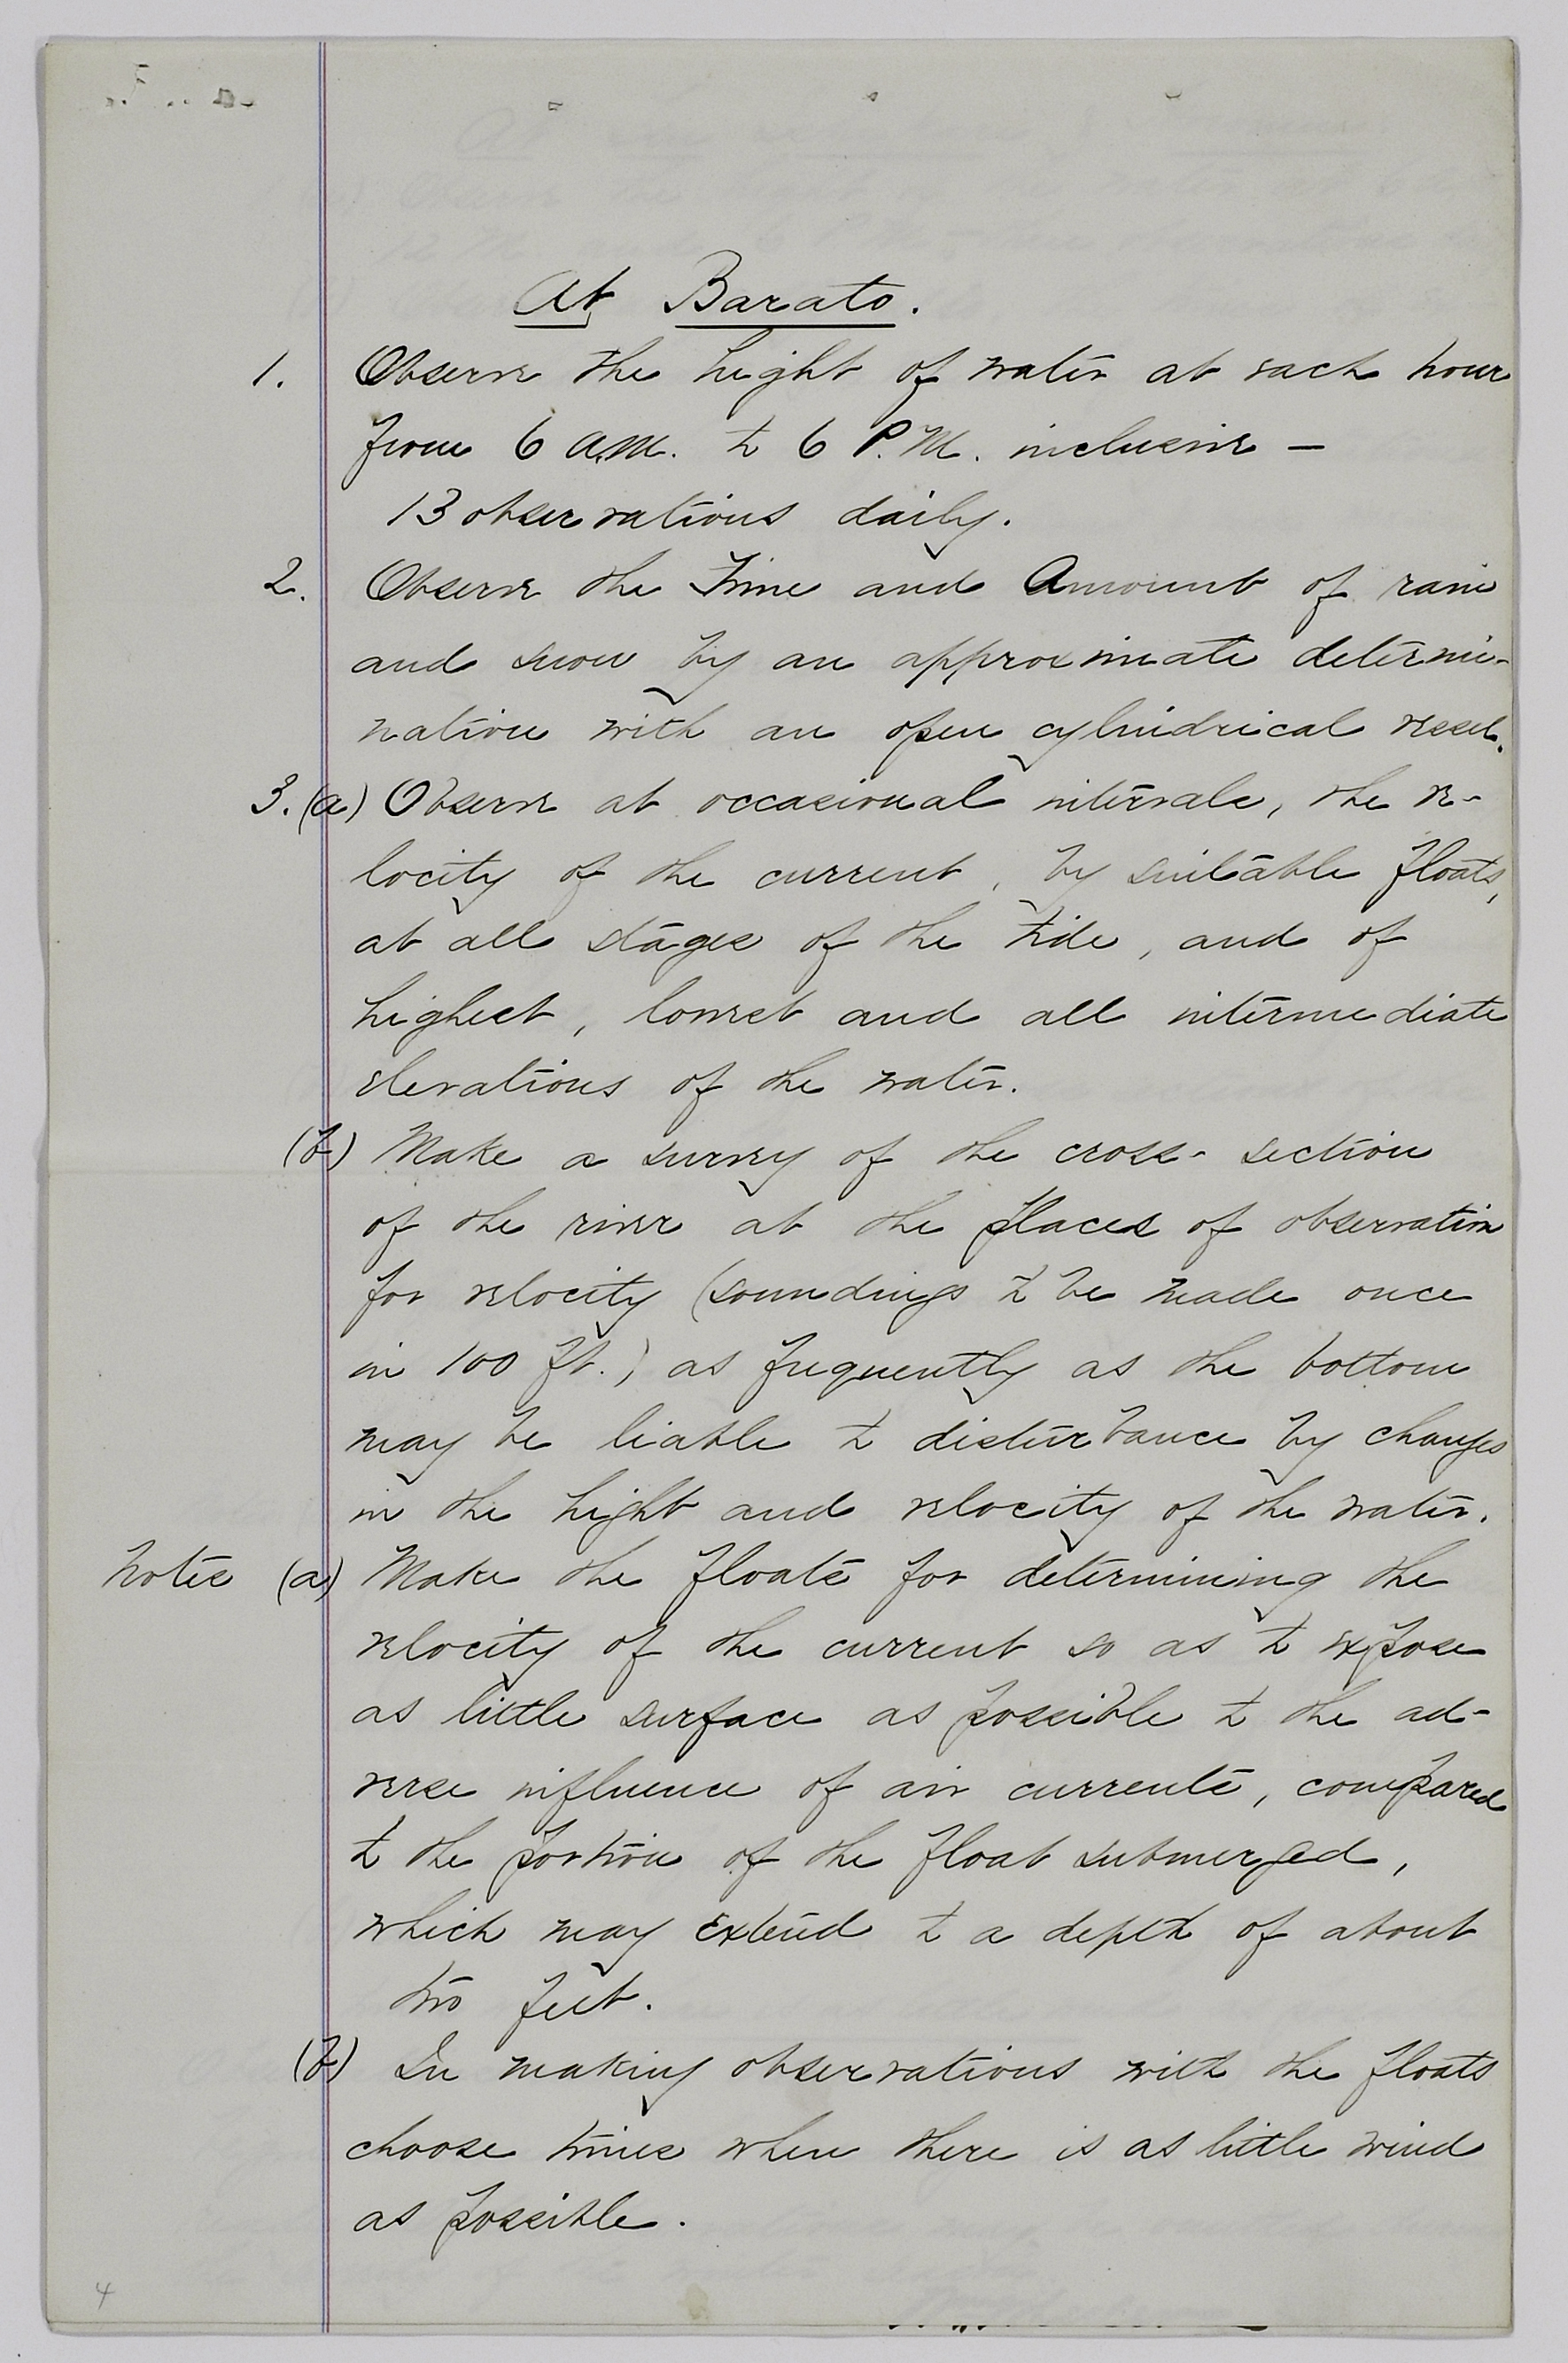 At Barato.
1. Observe the hight of water at each hour
from 6 A.M. to 6 P.M. inclusive —
13 observations daily.
2. Observe the Time and Amount of rain
and snow by an approximate determi-
nation with an open cylindrical vessel.
3. (a) Observe at occasional intervals, the ve-
locity of the current, by suitable floats,
at all stages of the tide, and of
highest, lowest and all intermediate
elevations of the water.
(b) Make a survey of the cross-section
of the river at the places of observation
for velocity (soundings to be made once
in 100 ft.) as frequently as the bottom
may be liable to disturbance by changes
in the hight and velocity of the water.
Notes (a) Make the floats for determining the
velocity of the current so as to expose
as little surface as possible to the ad-
verse influence of air currents, compared
to the portion of the float submerged,
which may extend to a depth of about
two feet.
(b) In making observations with the floats
choose times when there is as little wind
as possible.
4